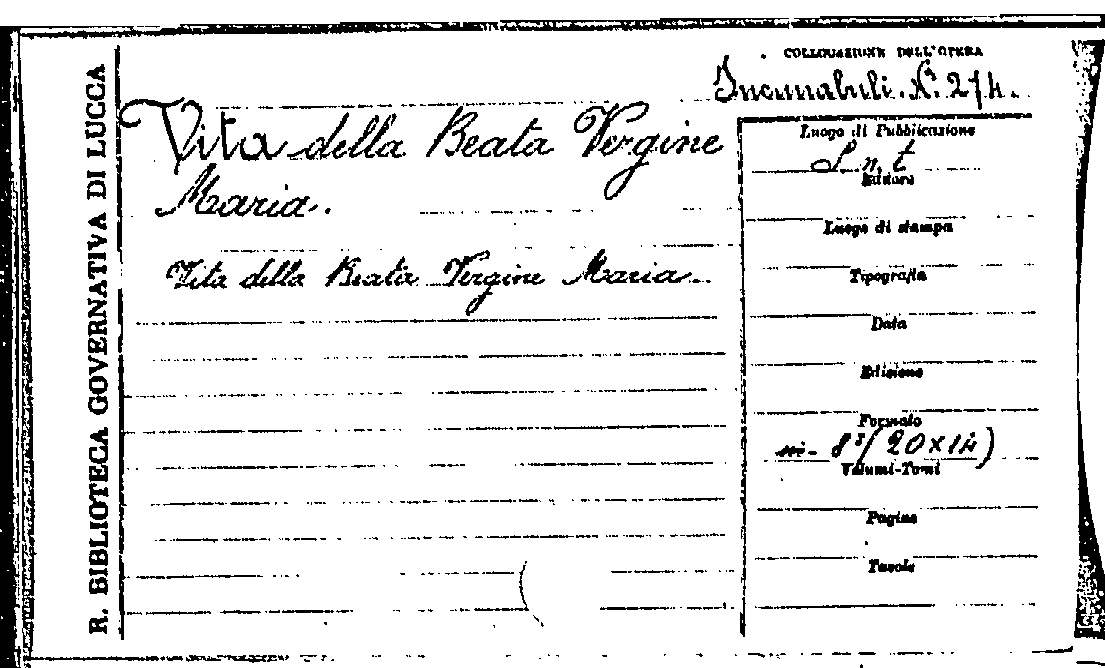 R. BIBLIOTECA GOVERNATIVA DI LUCCA
COLLOCAZIONE DELL'OPERA
Incunabuli. N. 274.
Vita della Beata Vergine
Maria.
Vita della Beata Vergine Maria.
Luogo di Pubblicazione
S. n. t
Editore
Luogo di stampa
Tipografia
Data
Edizione
Formato
in- 8° (20x14)
Volumi-Tomi
Pagine
Tavole